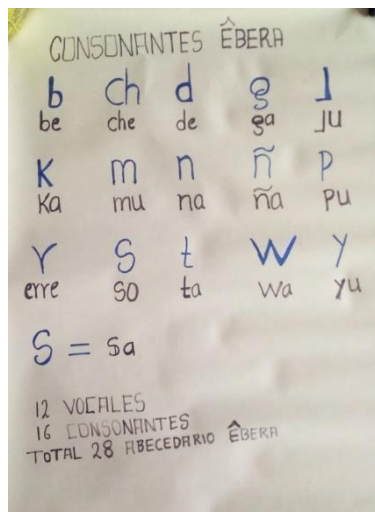 CONSONANTES ÊBERA
b ch d g J
be che de ga Ju
K m n ñ p
Ka mu na ña pu
r S t W y
erre so ta wa yu
S = sa
12 VOCALES
16 CONSONANTES
TOTAL 28 ABECEDARIO ÊBERA